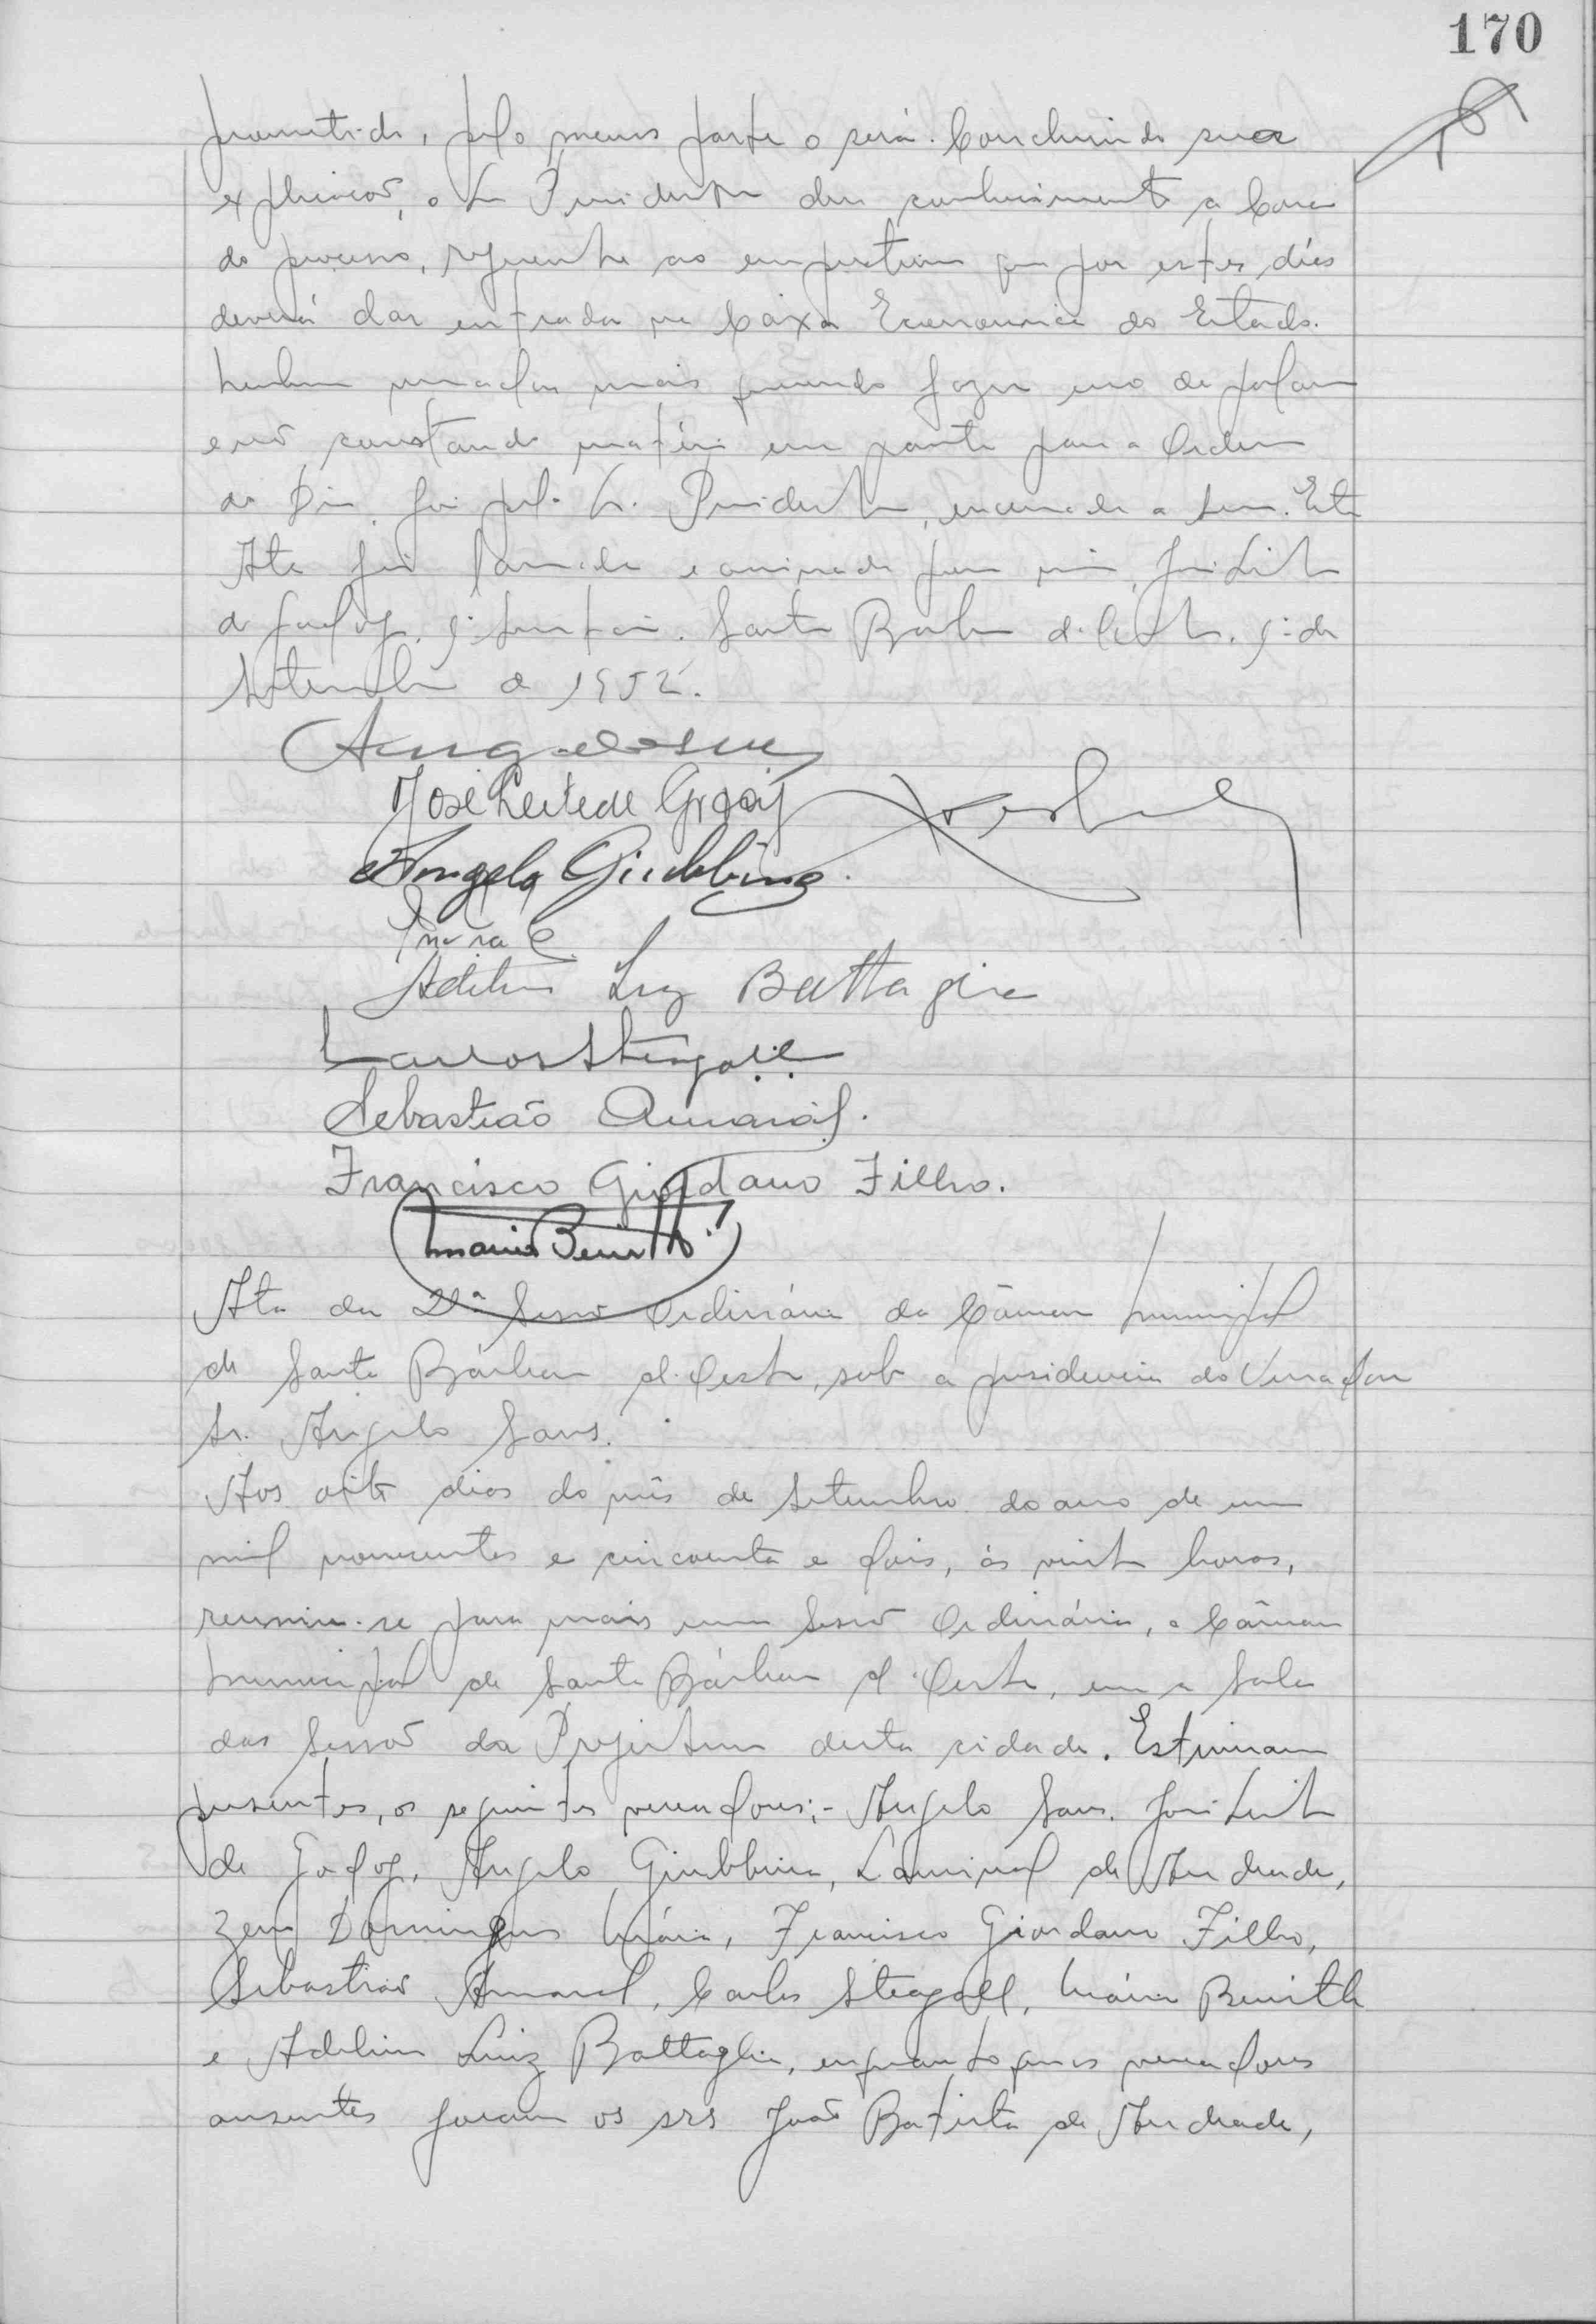 170
prometido, pelo menos parte o será. Concluindo sua
explicação, o Sr Presidente deu conhecimento a Casa
do processo, referente ao empréstimo que por estes dias
deverá dar entrada na Caixa Economica do Estado.
Nenhum vereador mais querendo fazer uso da palavra
e não constando matéria em pauta para a Ordem
do Dia, foi pelo Sr. Presidente, encerrada a sessão. Esta
Ata foi lavrada e assinada por mim, José Leite
de Godoy, 1º Secretário. Santa Barbara d'Oeste, 1º de
Setembro de 1952.
Angelo Sans
José Leite de Godoy
Angelo Giubbina
Adelino Luiz Battaglia
Carlos Steagall
Sebastião Amaral.
Francisco Giordano Filho.
Mario Benitto
Ata da 21ª Sessão Ordinária da Câmara Municipal
de Santa Bárbara d'Oeste, sob a presidencia do Vereador
Sr. Angelo Sans.
Aos oito dias do mês de Setembro do ano de um
mil novecentos e cincoenta e dois, ás vinte horas,
reuniu-se para mais uma Sessão Ordinária, a Câmara
Municipal de Santa Bárbara d'Oeste, em a Sala
das Sessões da Prefeitura desta cidade. Estiveram
presentes, os seguintes vereadores:- Angelo Sans, José Leite
de Godoy, Angelo Giubbina, Lourival de Andrade,
Zeno Domingues Maia, Francisco Giordano Filho,
Sebastião Amaral, Carlos Steagall, Mário Benitto
e Adelino Luiz Battaglia, enquanto que os vereadores
ausentes foram os srs João Batista de Andrade,